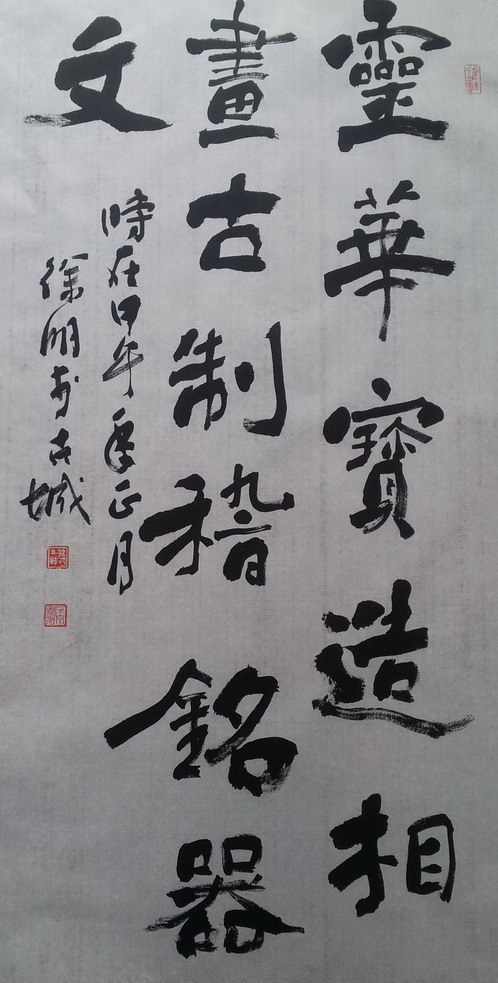 靈華寶造相
畫古制稽銘器
文
時在甲午秊正月
徐明於古城